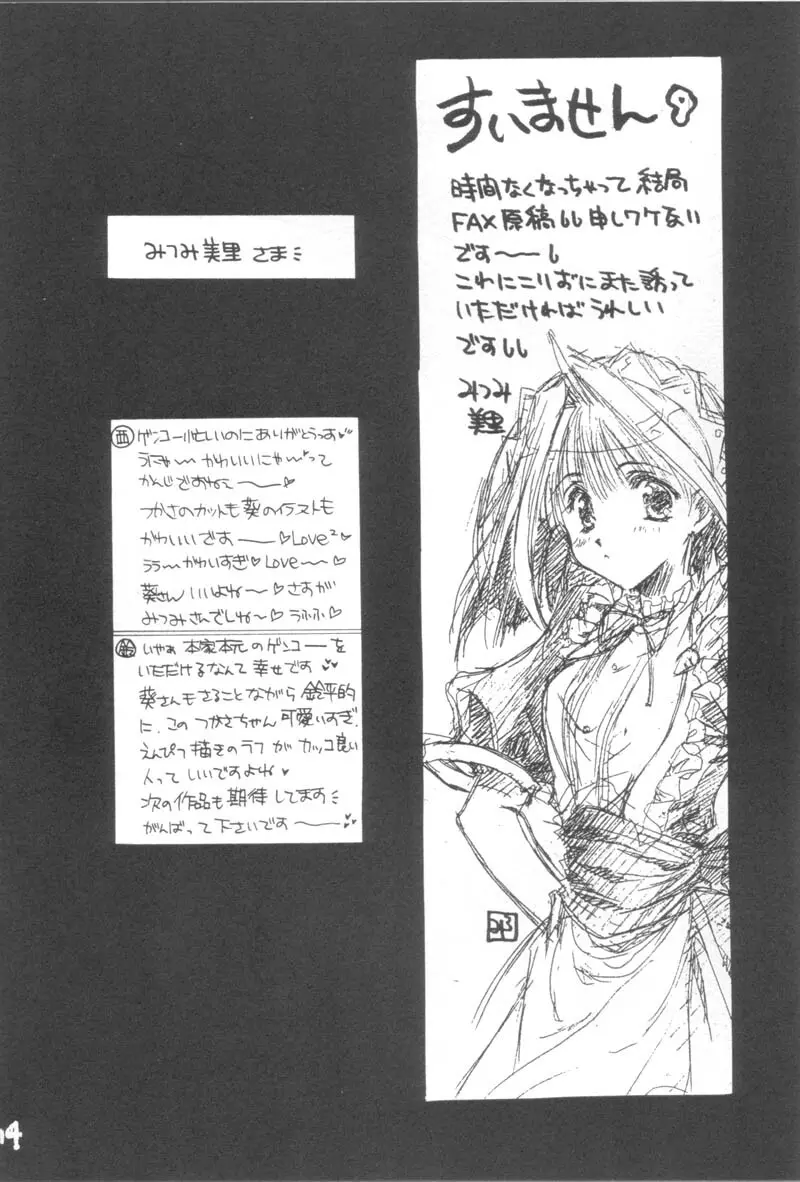 すいません
時間なくなっちゃって結局
FAX原稿し申しワケない
です〜〜し
これにこりずにまた誘って
いただければうれしい
です
みつみ
美里
みつみ美里 さま
西 ゲンコー忙しいのにありがとうっす♥
うにゃ〜〜かわいいにゃ〜♥って
かんじですねて〜〜♥
つかさのカットも葵のイラストも
かわいいです〜〜♡Love²
ララ〜かわいすぎ♥Love〜〜♡
葵さん いいよね〜♡ さすが
みつみさんでしね〜♡ うふふ♡
いやぁ 本家本元のゲンコーを
いただけるなんて 幸せです♥
葵さんもさることながら 鈴平的
に、この つかさちゃん可愛いすぎ。
えんぴつ描きのラフが カッコ良い
人って いいですよね♥
次の作品も期待してます
がんばって下さいです〜〜♥
14